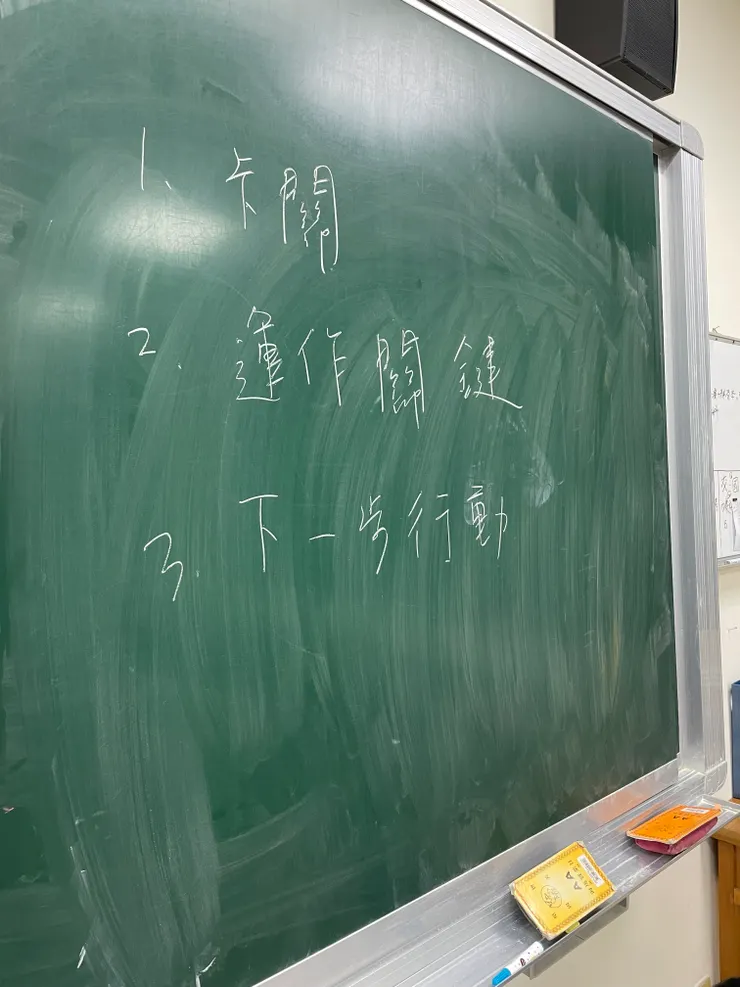 1、卡關
2. 運作關鍵
3. 下一步行動